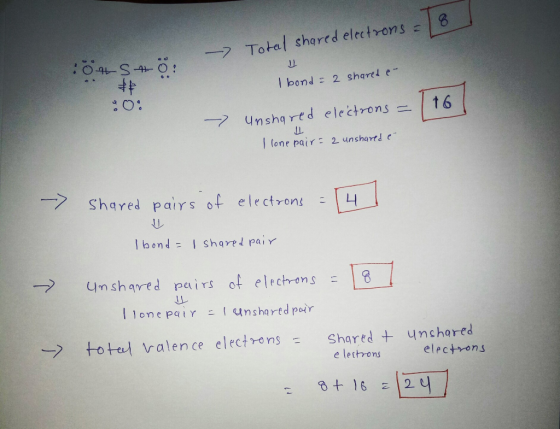 → Total shared electrons = 8
⇓
1 bond = 2 shared e⁻
:Ö – S – Ö:
:O:
→ Unshared electrons = 16
⇓
1 lone pair = 2 unshared e⁻
→ Shared pairs of electrons = 4
⇓
1 bond = 1 shared pair
→ Unshared pairs of electrons = 8
⇓
1 lone pair = 1 unshared pair
→ total valence electrons = shared + unshared
electrons electrons
= 8 + 16 = 24